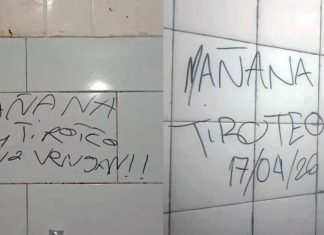 AÑANA
TIROTEO
NO VENGAN!!
MAÑANA
TIROTEO
17/04/26